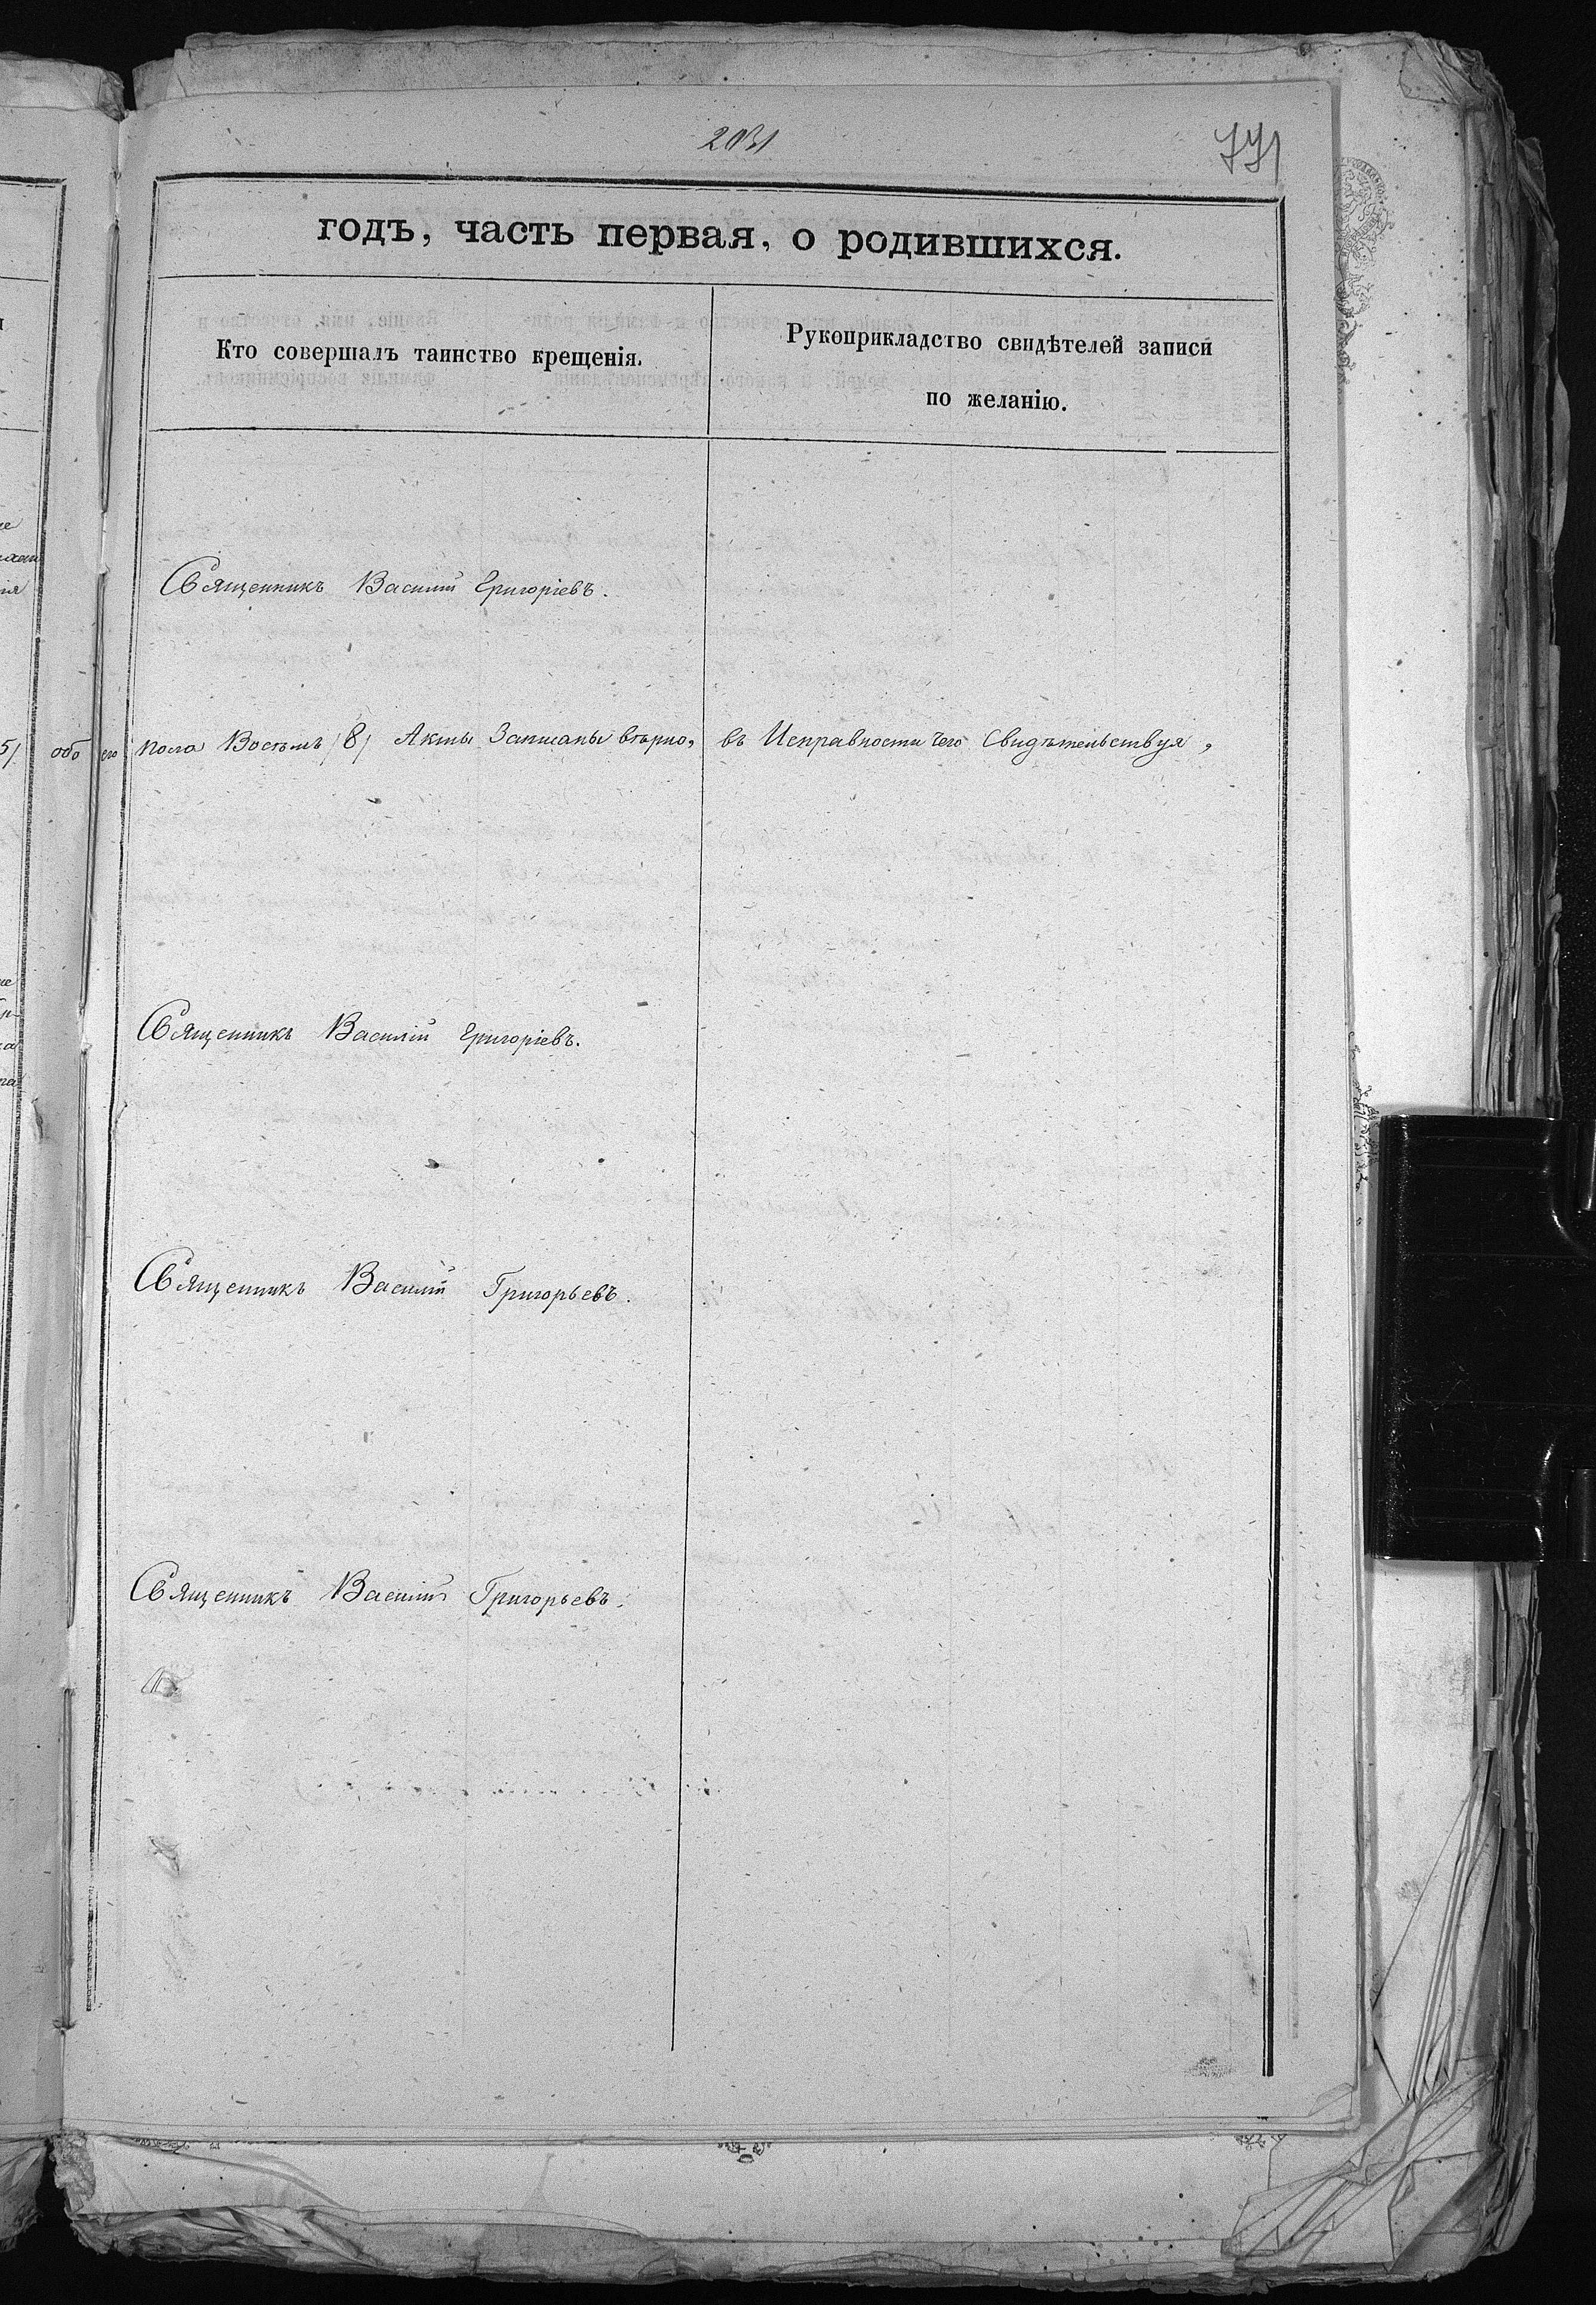 771
годъ, часть первая, о родившихся.
Кто совершалъ таинство крещенія.
Рукоприкладство свидѣтелей записи
по желанію.
Священникъ Василій Григоріевъ.
обоего пола Восемь /8/ Акты Записаны вѣрно, въ Исправности чего Свидѣтельствуя,
Священникъ Василій Григоріевъ.
Священникъ Василій Григорьевъ.
Священникъ Василій Григорьевъ.